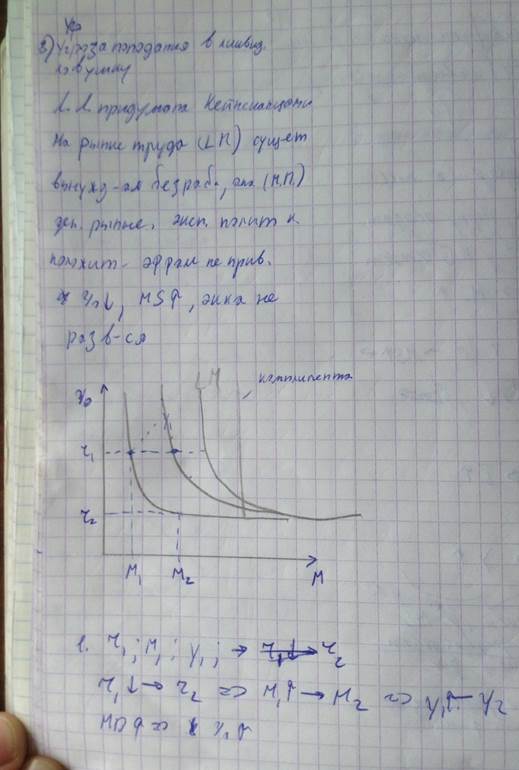 2) Угроза попадания в ликвид.
ловушку
Л.Л. придумала Кейнсианцами
На рынке труда (LП) сущет
вынужд-ая безраб.,
ден. рынке. эксп. полит к
положит. эффек не прив.
%↓, MS↑, эк-ка не
разв-ся
LM
%
r₁
r₂
M₁ M₂ M
1. r₁; M₁; Y₁; → r₁↓→ r₂
r₁↓ → r₂ => M₁↑ → M₂ => Y₁↑ - Y₂